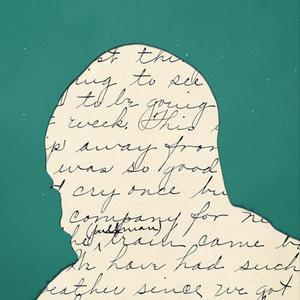 st thi
ing to see
to be going
week. This
p away from
was so good
cry once bu
company for ne
(pullman)
he train came b
have had such
eather since we got